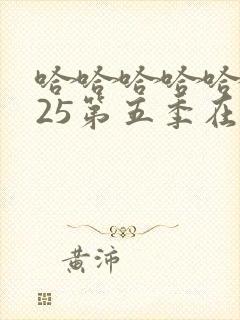 哈哈哈哈哈
25第五季在
黄沛